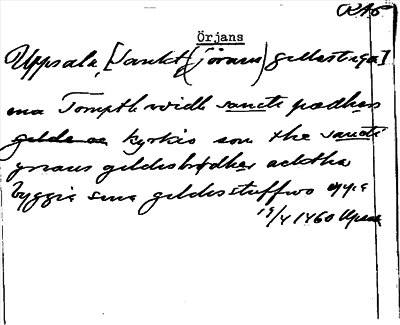 RAp
Örjans
Uppsala, [Sankt (Jörans) gillestuga]
ena Tompth widh sancte pædhers
gilde oc kyrkio som the sancte
yrians gildisbrødher acktha
byggia sina gildisstuffwo oppa
19/4 1460 Upsala